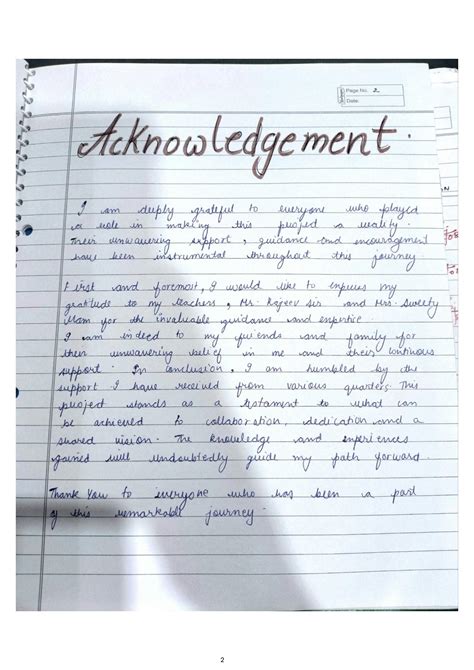 Page No. 2
Date:
Acknowledgement.
I am deeply grateful to everyone who played
a role in making this project a reality.
Their unwavering support, guidance and encouragement
have been instrumental throughout this journey
First and foremost, I would like to express my
gratitude to my teachers, Mr. Rajeev Sir and Mrs. Sweety
Mam for the invaluable guidance and expertise.
I am indeed to my friends and family for
their unwavering belief in me and their continous
support. In conclusion, I am humbled by the
support I have received from various quarters. This
project stands as a testament to what can
be achieved to collaboration, dedication and a
shared vision. The knowledge and experiences
gained will undoubtedly guide my path forward.
Thank You to everyone who has been a part
of this remarkable journey.
2